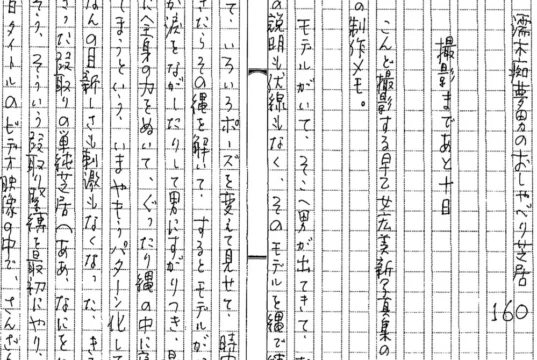 濡木痴夢男のおしゃべり芝居
160
撮影まであと十日
こんど撮影する早乙女宏美新写真集の
の制作メモ。
モデルがいて、そこへ男が出てきて、
の説明も伏線もなく、そのモデルを縄で
て、いろいろポーズを変えて見せて、時
きたらその縄を解いて、するとモデルが、
が涙をながしたりして男にすがりつき、
に全身の力をぬいて、ぐったり縄の中に
しまうという、いまやもうパターン化して
なんの目新しさも刺激もなくなった、
きった段取りの単純芝居(ああ、なにを
そう、そういう段取り緊縛を最初にやり、
タイトルのビデオ映像の中で、さんざん